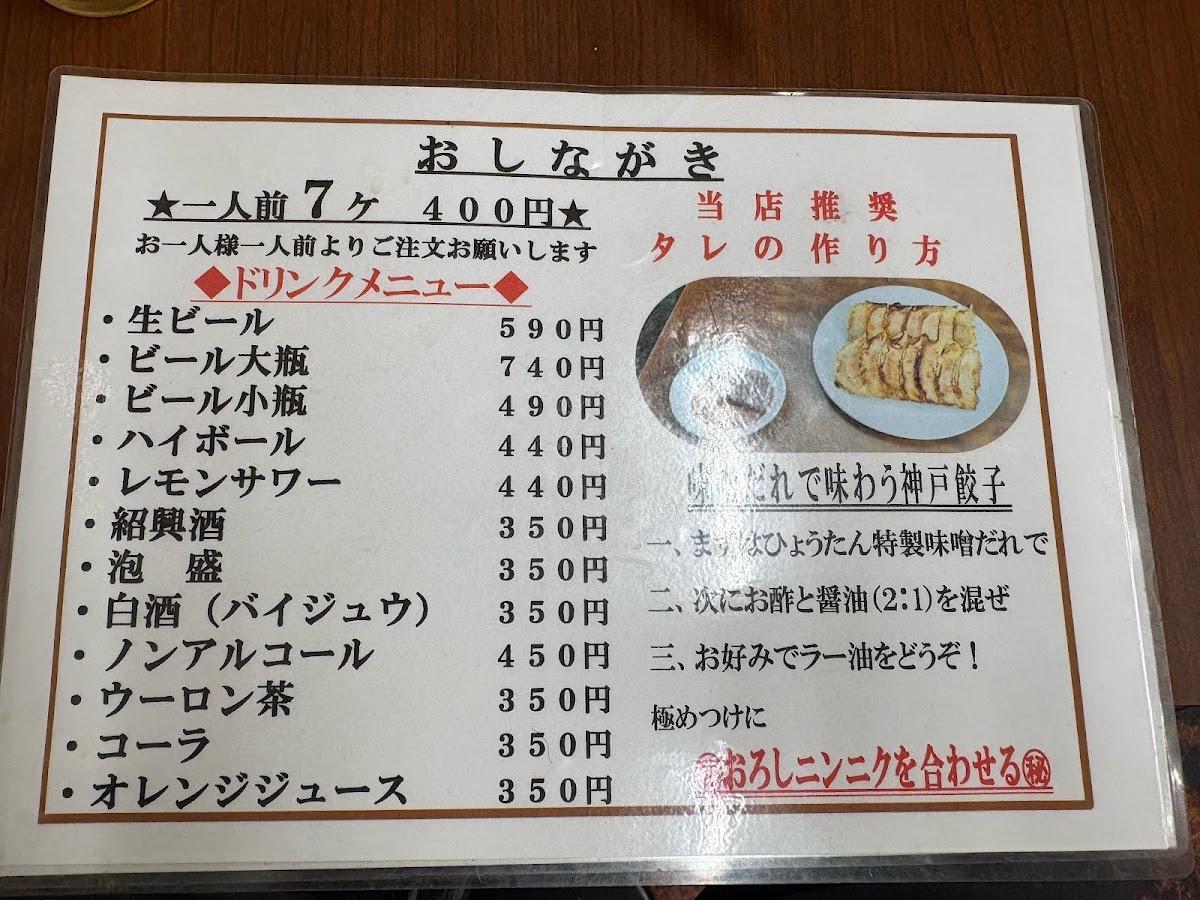 おしながき
★一人前 7ヶ 400円★
お一人様一人前よりご注文お願いします
◆ドリンクメニュー◆
・生ビール 590円
・ビール大瓶 740円
・ビール小瓶 490円
・ハイボール 440円
・レモンサワー 440円
・紹興酒 350円
・泡 盛 350円
・白酒（バイジュウ） 350円
・ノンアルコール 450円
・ウーロン茶 350円
・コーラ 350円
・オレンジジュース 350円
当店推奨
タレの作り方
だれで味わう神戸餃子
一、まずはひょうたん特製味噌だれで
二、次にお酢と醤油(2:1)を混ぜ
三、お好みでラー油をどうぞ！
極めつけに
おろしニンニクを合わせる㊙